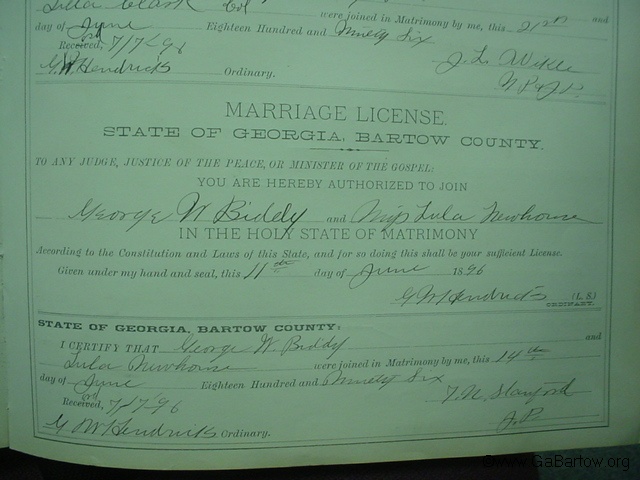 Lula Clark Col were joined in Matrimony by me, this 21st and
day of June Eighteen Hundred and Ninety Six
Received, 7/7-96 J. L.
G W Hendricks Ordinary. N P & J.P.
MARRIAGE LICENSE.
STATE OF GEORGIA, BARTOW COUNTY.
TO ANY JUDGE, JUSTICE OF THE PEACE, OR MINISTER OF THE GOSPEL:
YOU ARE HEREBY AUTHORIZED TO JOIN
George W Biddy and Miss Lula Newhouse
IN THE HOLY STATE OF MATRIMONY
According to the Constitution and Laws of this State, and for so doing this shall be your sufficient License.
Given under my hand and seal, this 11th day of June 1896
G W Hendricks (L. S)
ORDINARY.
STATE OF GEORGIA, BARTOW COUNTY:
I CERTIFY THAT George W. Biddy and
Lula Newhouse were joined in Matrimony by me, this 14th
day of June Eighteen Hundred and Ninety Six
Rec'rd Received, 7/7-96 T. N. Stanford
G W Hendricks Ordinary. J. P.
www.GaBartow.org